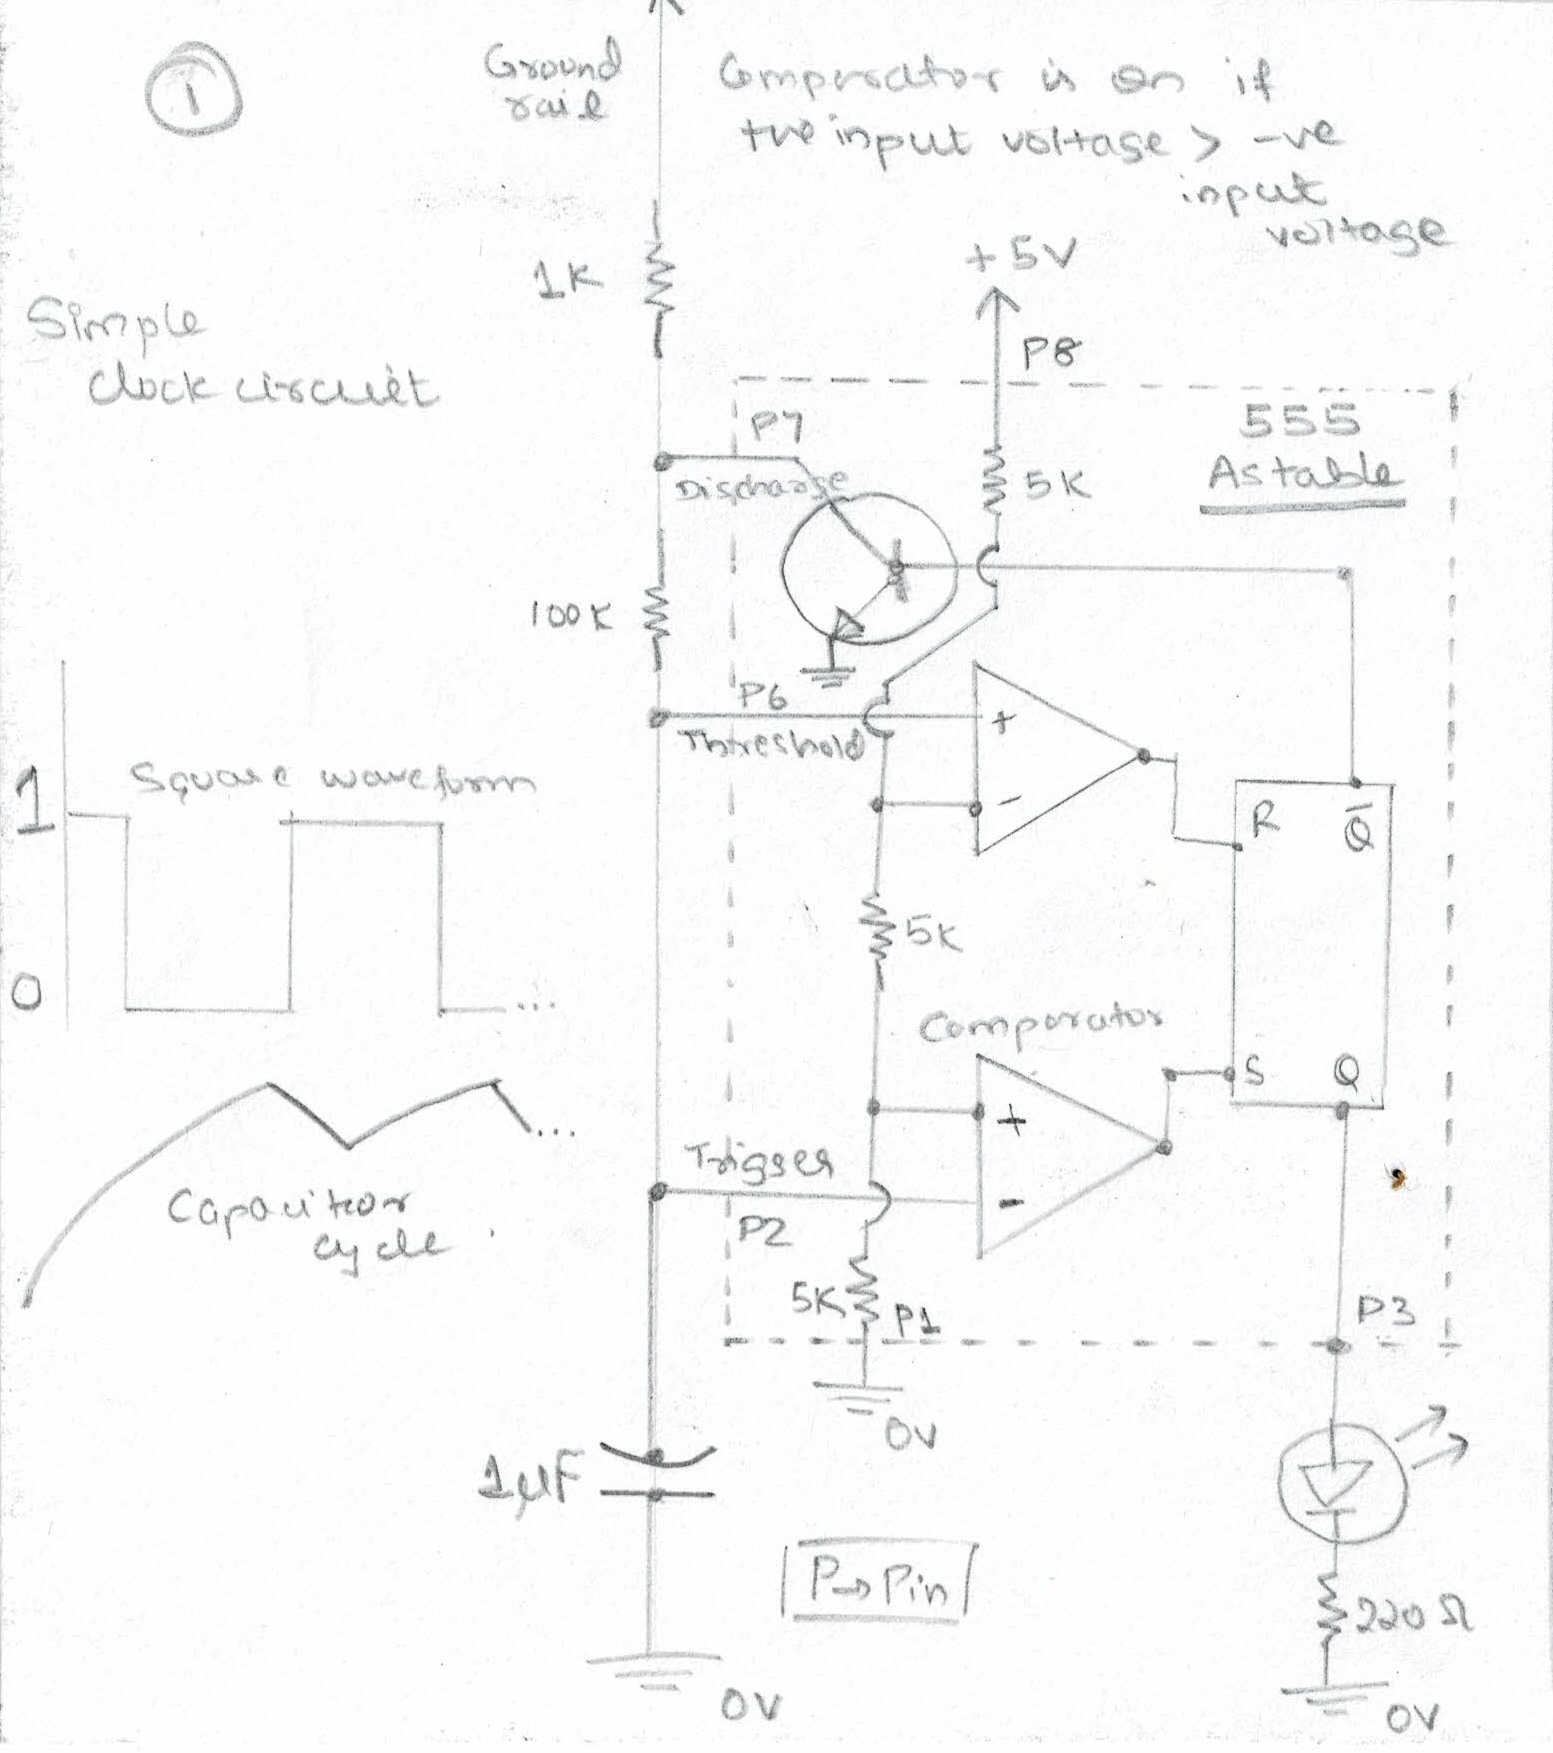 1
Ground
rail
Comparator is on if
+ve input voltage > -ve
input
voltage
+5V
1K
P8
Simple
clock circuit
555
Astable
P7
Discharge
5K
100K
P6
Threshold
+
-
R
Q̄
1
Square waveform
0
...
5K
Comparator
S
Q
+
-
Trigger
P2
...
Capacitor
cycle.
5K
P1
P3
0V
1µF
P→Pin
220Ω
0V
0V